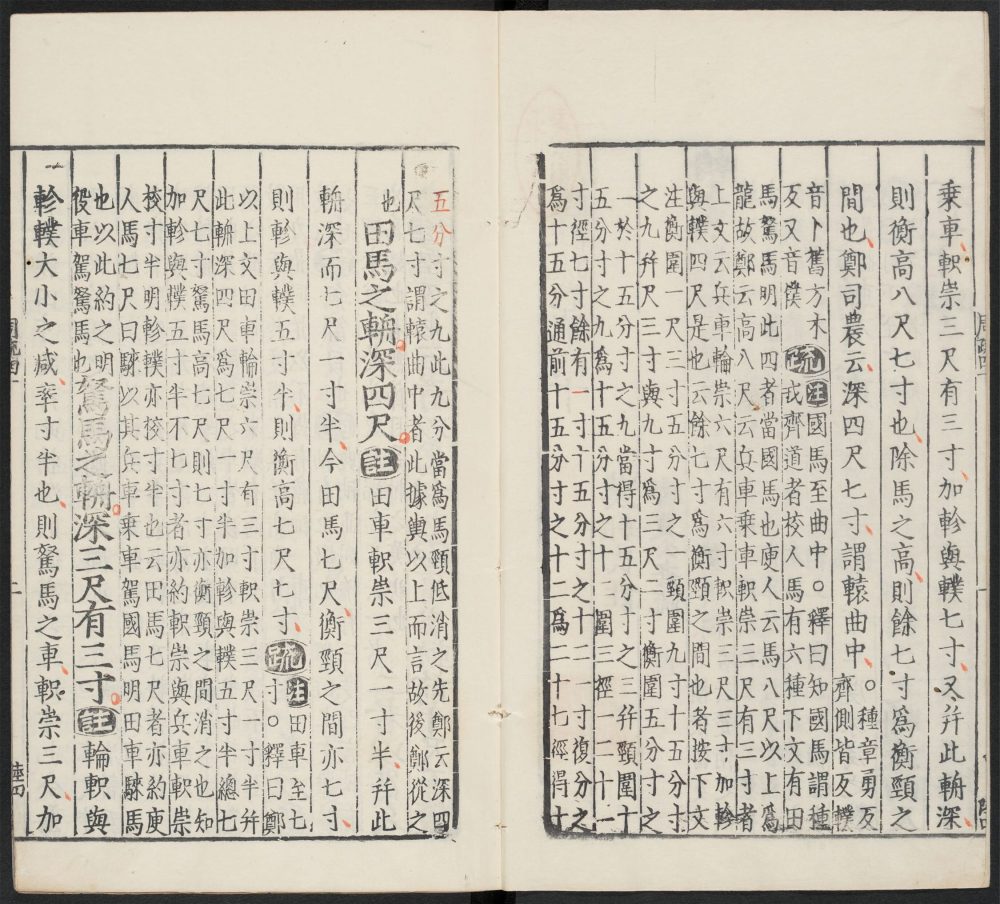 乗車軹崇三尺有三寸加軫與轐七寸又并此輈深
則衡高八尺七寸也除馬之高則餘七寸爲衡頸之
間也鄭司農云深四尺七寸謂轅曲中
。種章勇反
齊側皆反轐
音卜舊方木
反又音僕
疏
注國馬至曲中。釋曰知國馬謂種
戎齊道者校人馬有六種下文有田
馬駑馬明此四者當國馬也庾人云馬八尺以上爲
龍故鄭云高八尺云兵車乗車軹崇三尺有三寸者
上文云兵車輪崇六尺有六寸軹崇三尺三寸加軫
與轐四尺是也云餘七寸爲衡頸之間也者按下文
注衡圍一尺三寸五分寸之一頸圍九寸十五分寸
之九并尺三寸與九寸爲三尺二寸衡圍五分寸之
一於十五分寸之九當得十五分寸之三并頸圍十
五分寸之九爲十五分寸之十二圍三徑一二十一
寸徑七寸餘有一寸十五分寸之十二一寸復分之
爲十五分通前十五分寸之十二爲二十七徑得十
五分寸之九此九分當爲馬頸低消之先鄭云深四
尺七寸謂轅曲中者此據輿以上而言故後鄭從之
也
田馬之輈深四尺註田車軹崇三尺一寸半并此
輈深而七尺一寸半今田馬七尺衡頸之間亦七寸
則軫與轐五寸半則衡高七尺七寸疏
注田車至七
寸。釋曰鄭
以上文田車輪崇六尺有三寸軹崇三尺一寸半并
此輈深四尺爲七尺一寸半加軫與轐五寸半總七
尺七寸駑馬高七尺則七寸亦衡頸之間消之也知
加軫與轐五寸半不七寸者亦約軹崇與兵車軹崇
校寸半明軫轐亦校寸半也云田馬七尺者亦約庾
人馬七尺曰騋以其兵車乗車駕國馬明田車騋馬
也以此約之明
役車駕駑馬也
駑馬之輈深三尺有三寸註輪軹與
軫轐大小之減率寸半也則駑馬之車軹崇三尺加